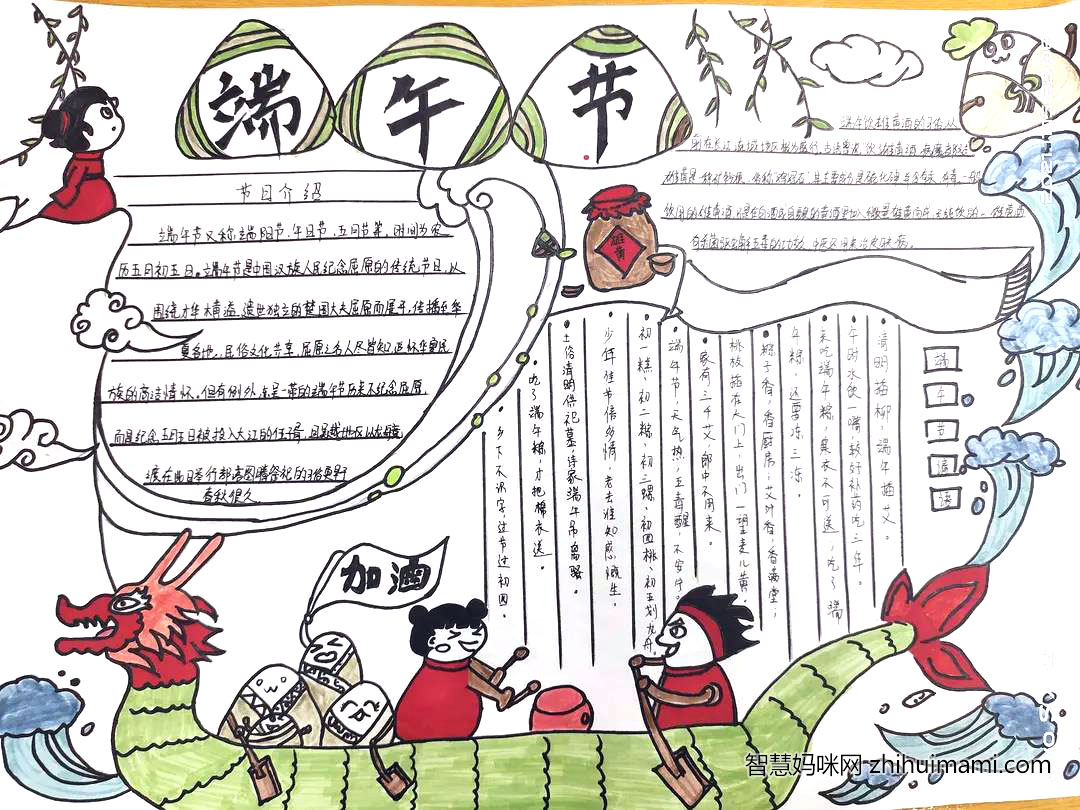 端午节
节日介绍
端午节又称端阳节、午日节、五月节等,时间为农
历五月初五日。端午节是中国汉族人民纪念屈原的传统节日,以
围绕才华横溢、遗世独立的楚国大夫屈原而展开,传播至华
夏各地,民俗文化共享,屈原之名人尽皆知,追怀华夏民
族的高洁情怀。但有例外,东吴一带的端午节历来不纪念屈原,
而是纪念五月五日被投入大江的伍子胥,且吴越地区以龙舟竞
渡在此日举行部落图腾祭祀的习俗更早
春秋很久
端午饮雄黄酒的习俗,从
前在长江流域地区极为盛行。
雄黄
清明插柳,端午插艾。
午时水饮一嘴,较好补药吃三年。
未吃端午粽,臭衣不可送,吃了端
午粽,还要冻三冻。
粽子香,香厨房;艾叶香,香满堂;
桃枝插在大门上,出门一望麦儿黄。
家有三年艾,郎中不用来。
端午节,天气热,五毒醒,不安宁。
初一糕、初二粽、初三螺、初四桃、初五划龙舟。
少年佳节倍多情,老去谁知感慨生。
土俗清明供祀墓,诗家端午吊离骚
吃了端午粽,才把棉衣送。
乡下不识字,过节过初四。
端午节谚语
加油
智慧妈咪网 zhihuimami.com